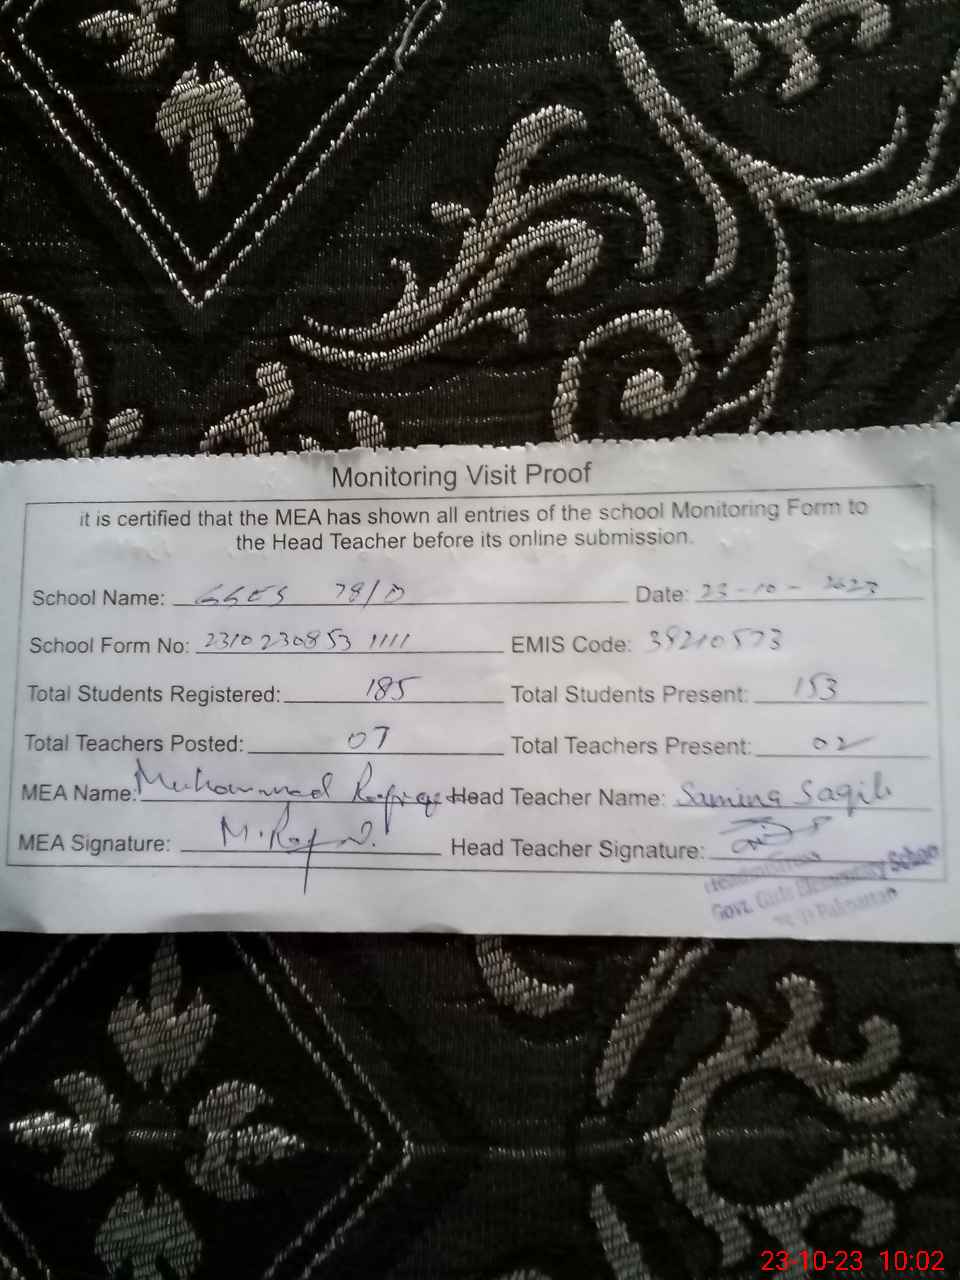 Monitoring Visit Proof
it is certified that the MEA has shown all entries of the school Monitoring Form to
the Head Teacher before its online submission.
School Name: GGES 78/D Date: 23-10-2023
School Form No: 2310230853 1111 EMIS Code: 39210573
Total Students Registered: 185 Total Students Present: 153
Total Teachers Posted: 07 Total Teachers Present: 02
MEA Name: Muhammad Rafiqe Head Teacher Name: Samina Saqib
MEA Signature: Head Teacher Signature:
Govt. Girls Elementary School
Pakpattan
23-10-23 10:02